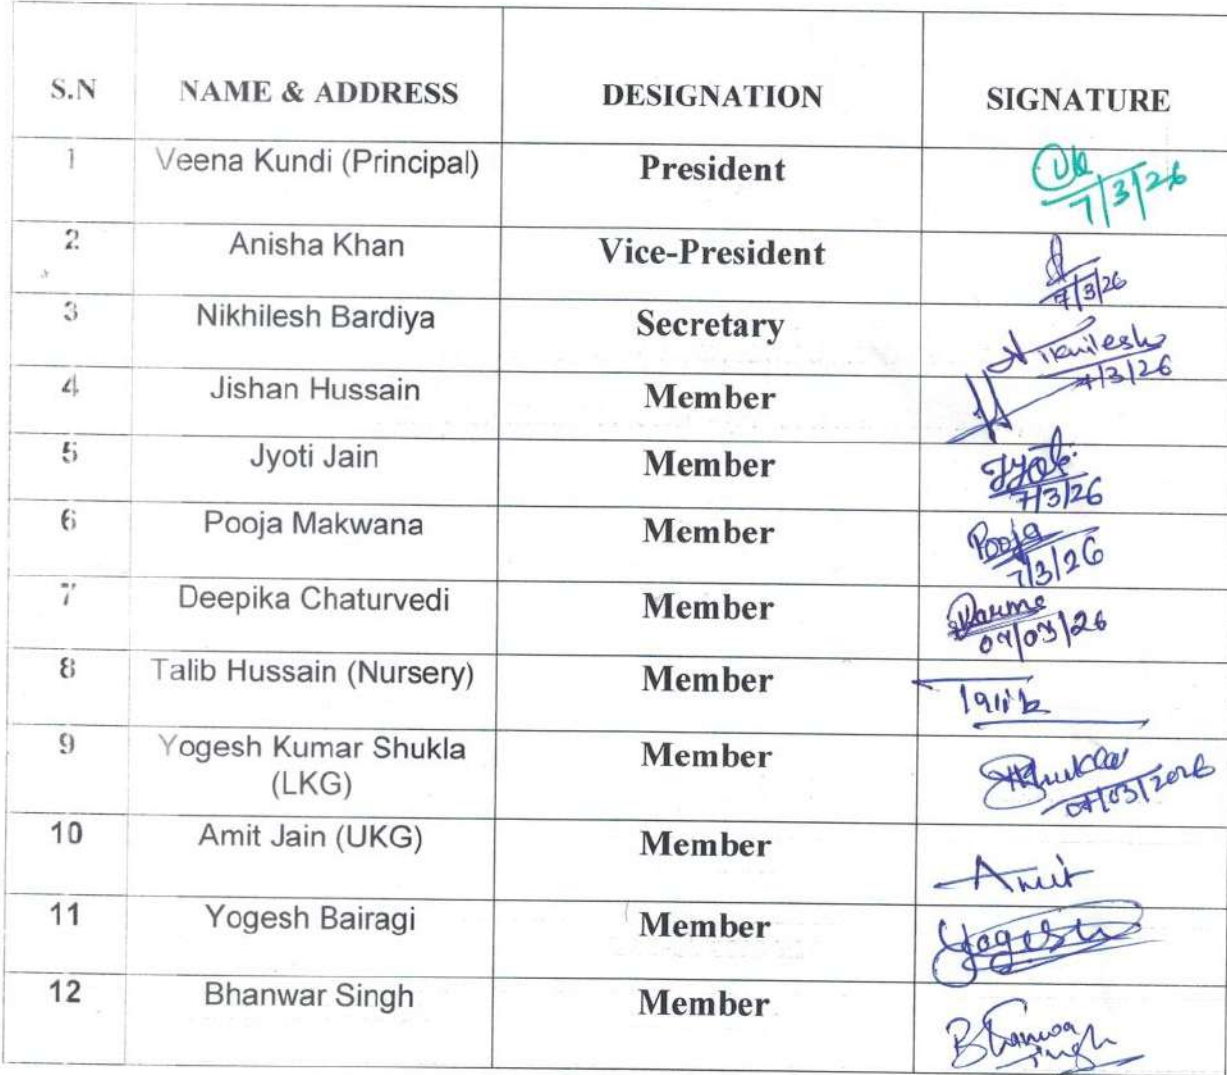 S.N NAME & ADDRESS DESIGNATION SIGNATURE
1 Veena Kundi (Principal) President
7/3/26
2 Anisha Khan Vice-President
7/3/26
3 Nikhilesh Bardiya Secretary Nikhilesh
7/3/26
4 Jishan Hussain Member
5 Jyoti Jain Member Jyoti
7/3/26
6 Pooja Makwana Member Pooja
7/3/26
7 Deepika Chaturvedi Member
07/03/26
8 Talib Hussain (Nursery) Member
9 Yogesh Kumar Shukla Member Shukla
(LKG) 07/03/2026
10 Amit Jain (UKG) Member Amit
11 Yogesh Bairagi Member Yogesh
12 Bhanwar Singh Member Bhanwar
Singh